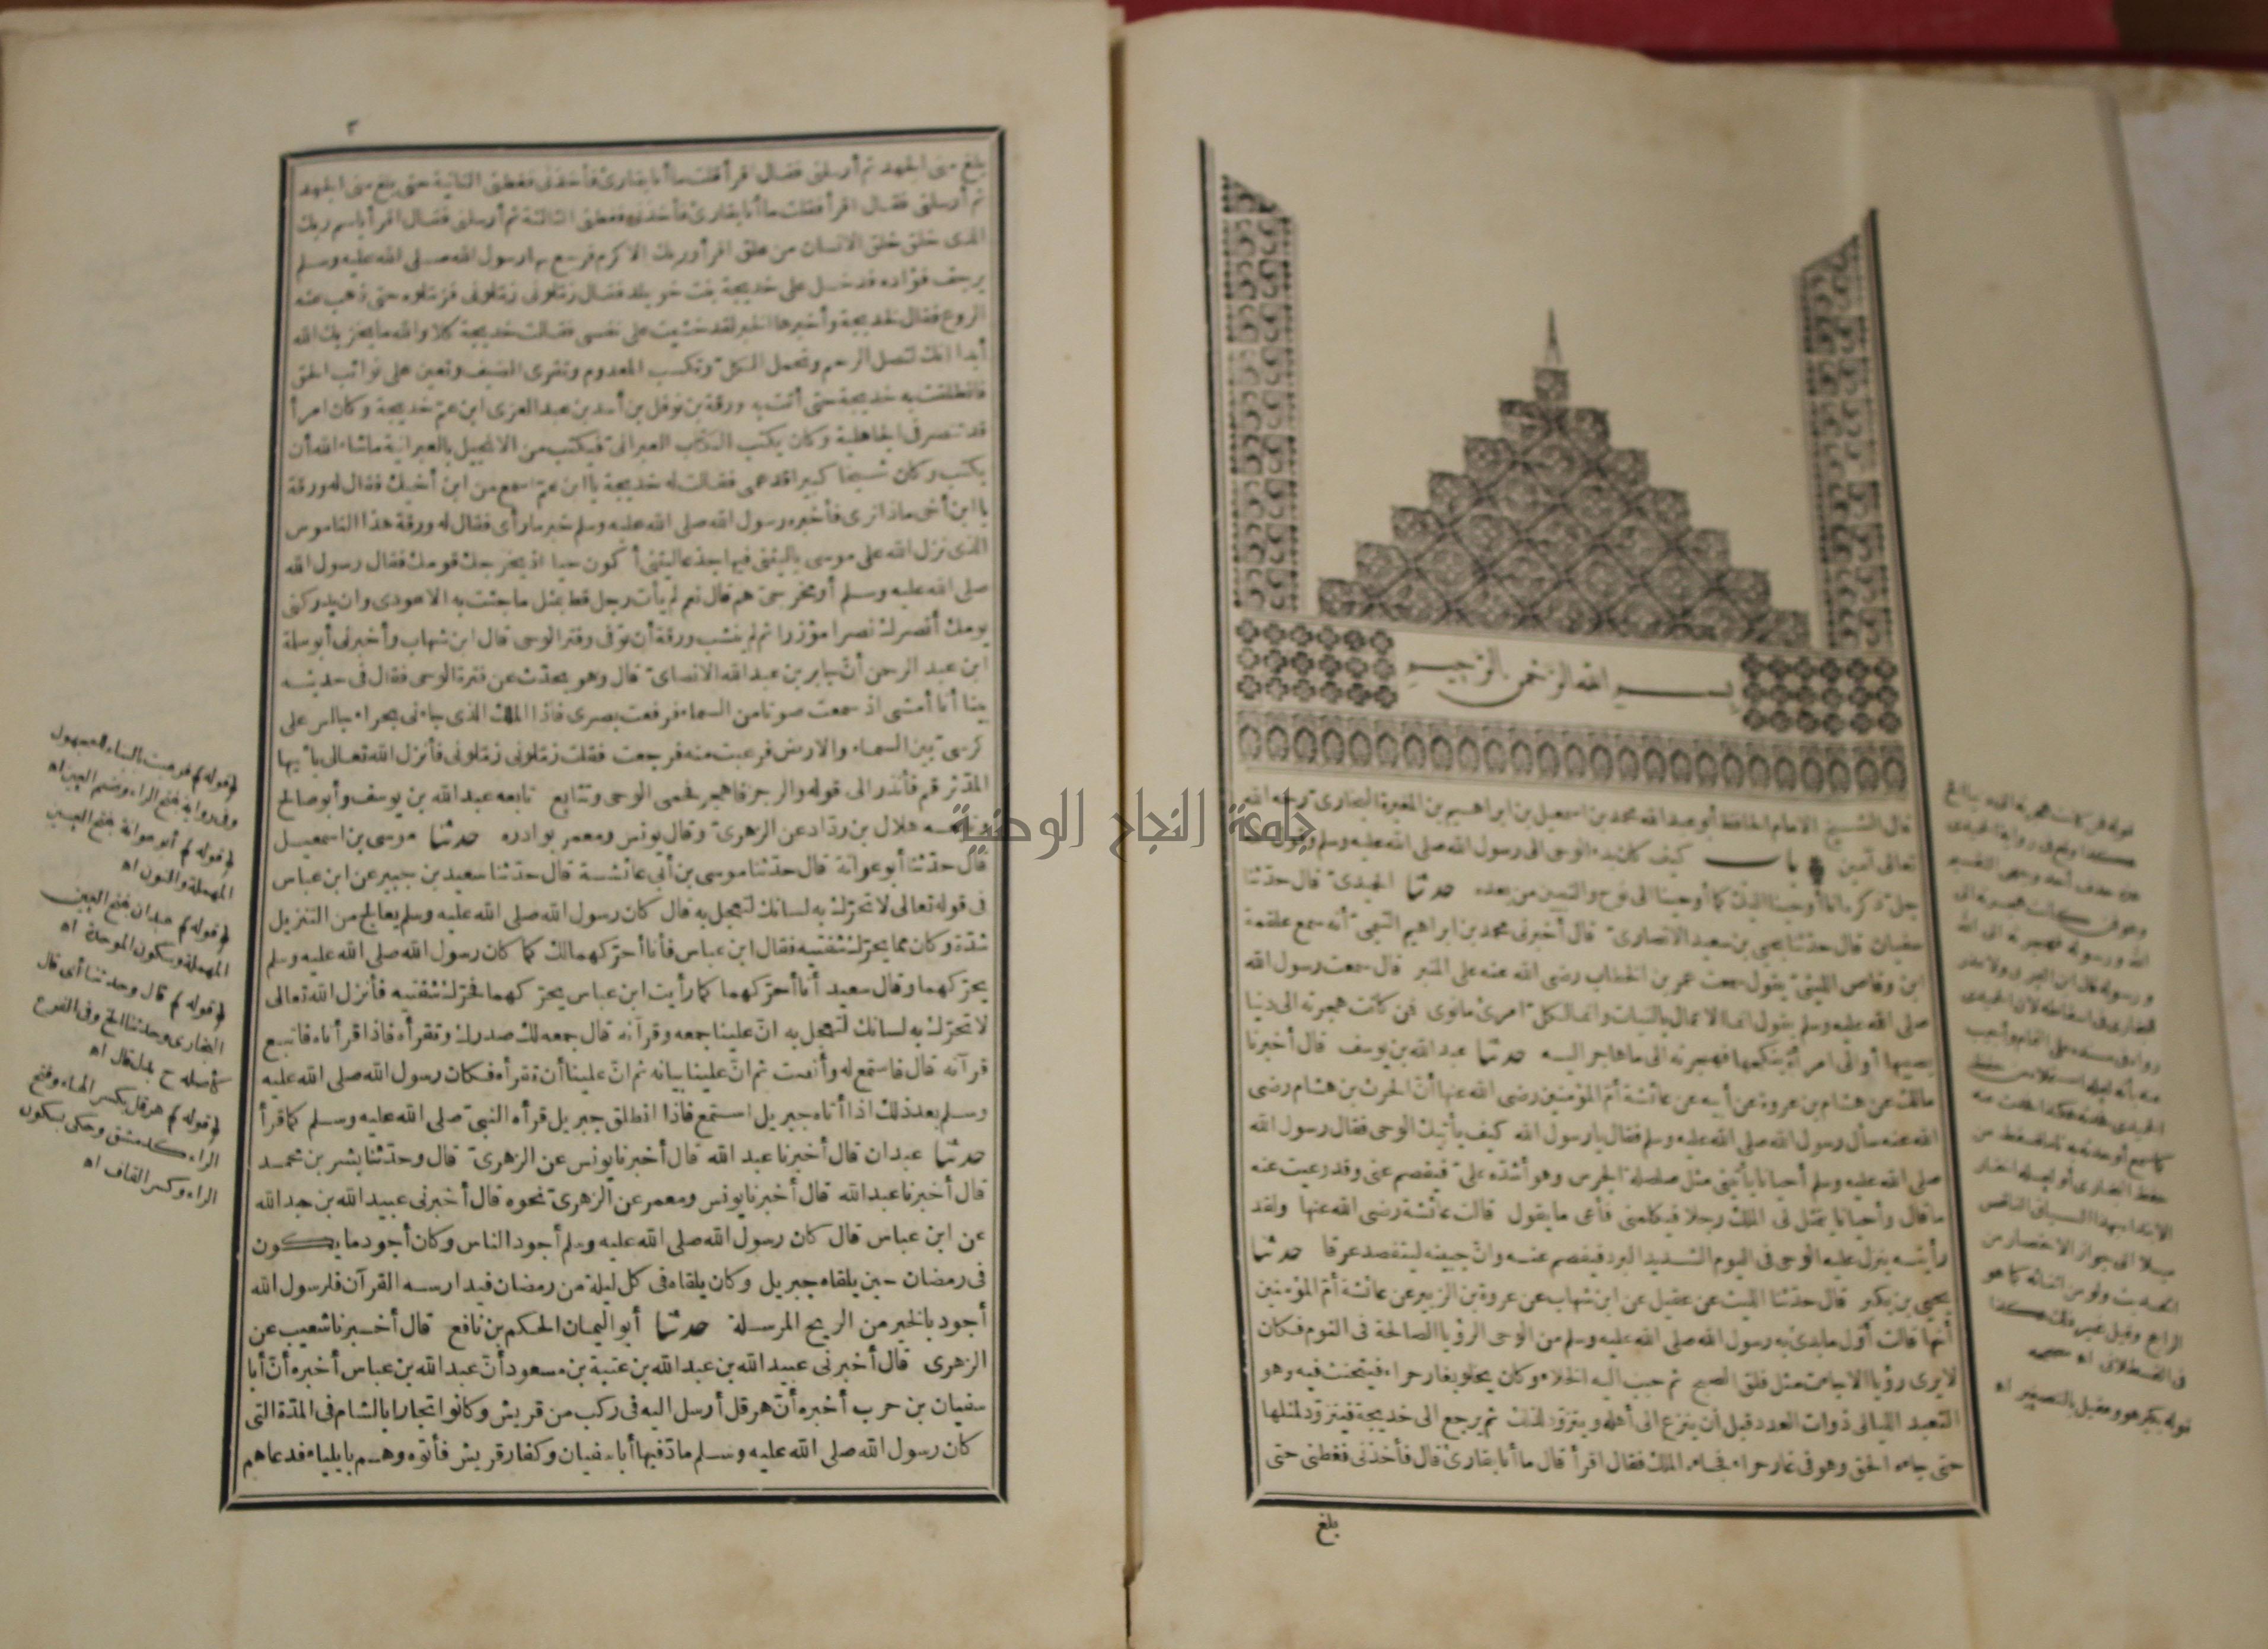 بسم الله الرحمن الرحيم
قال الشيخ الامام الحافظ أبو عبد الله محمد بن اسمعيل بن ابراهيم بن المغيرة البخارى رحمه الله
تعالى آمين باب كيف كان بدء الوحى الى رسول الله صلى الله عليه وسلم وقول الله
جل ذكره انا أوحينا اليك كما أوحينا الى نوح والنبيين من بعده حدثنا الحميدى قال حدثنا
سفيان قال حدثنا يحيى بن سعيد الانصارى قال أخبرنى محمد بن ابراهيم التيمى أنه سمع علقمة
ابن وقاص الليثى يقول سمعت عمر بن الخطاب رضى الله عنه على المنبر قال سمعت رسول الله
صلى الله عليه وسلم يقول انما الاعمال بالنيات وانما لكل امرئ مانوى فمن كانت هجرته الى دنيا
يصيبها أوالى امرأة ينكحها فهجرته الى ماهاجر اليه حدثنا عبد الله بن يوسف قال أخبرنا
مالك عن هشام بن عروة عن أبيه عن عائشة أم المؤمنين رضى الله عنها أن الحرث بن هشام رضى
الله عنه سأل رسول الله صلى الله عليه وسلم فقال يارسول الله كيف يأتيك الوحى فقال رسول الله
صلى الله عليه وسلم أحيانا يأتينى مثل صلصلة الجرس وهو أشده على فيفصم عنى وقد وعيت عنه
ماقال وأحيانا يتمثل لى الملك رجلا فيكلمنى فأعى مايقول قالت عائشة رضى الله عنها ولقد
رأيته ينزل عليه الوحى فى اليوم الشديد البرد فيفصم عنه وان جبينه ليتفصد عرقا حدثنا
يحيى بن بكير قال حدثنا الليث عن عقيل عن ابن شهاب عن عروة بن الزبير عن عائشة أم المؤمنين
أنها قالت أول مابدئ به رسول الله صلى الله عليه وسلم من الوحى الرؤيا الصالحة فى النوم فكان
لايرى رؤيا الاجاءت مثل فلق الصبح ثم حبب اليه الخلاء وكان يخلو بغار حراء فيتحنث فيه وهو
التعبد الليالى ذوات العدد قبل أن ينزع الى أهله ويتزود لذلك ثم يرجع الى خديجة فيتزود لمثلها
حتى جاءه الحق وهو فى غار حراء فجاءه الملك فقال اقرأ قال ماأنا بقارئ قال فأخذنى فغطنى حتى
بلغ
جامعة النجاح الوطنية
٣
بلغ منى الجهد ثم أرسلنى فقال اقرأ قلت ماأنا بقارئ فأخذنى فغطنى الثانية حتى بلغ منى الجهد
ثم أرسلنى فقال اقرأ فقلت ماأنا بقارئ فأخذنى فغطنى الثالثة ثم أرسلنى فقال اقرأ باسم ربك
الذى خلق خلق الانسان من علق اقرأ وربك الاكرم فرجع بها رسول الله صلى الله عليه وسلم
يرجف فؤاده فدخل على خديجة بنت خويلد فقال زملونى زملونى فزملوه حتى ذهب عنه
الروع فقال لخديجة وأخبرها الخبر لقد خشيت على نفسى فقالت خديجة كلا والله مايخزيك الله
أبدا انك لتصل الرحم وتحمل الكل وتكسب المعدوم وتقرى الضيف وتعين على نوائب الحق
فانطلقت به خديجة حتى أتت به ورقة بن نوفل بن أسد بن عبد العزى ابن عم خديجة وكان امرأ
قد تنصر فى الجاهلية وكان يكتب الكتاب العبرانى فيكتب من الانجيل بالعبرانية ماشاء الله أن
يكتب وكان شيخا كبيرا قد عمى فقالت له خديجة ياابن عم اسمع من ابن أخيك فقال له ورقة
ياابن أخى ماذا ترى فأخبره رسول الله صلى الله عليه وسلم خبر مارأى فقال له ورقة هذا الناموس
الذى نزل الله على موسى ياليتنى فيها جذعا ليتنى أكون حيا اذ يخرجك قومك فقال رسول الله
صلى الله عليه وسلم أومخرجى هم قال نعم لم يأت رجل قط بمثل ماجئت به الا عودى وان يدركنى
يومك أنصرك نصرا مؤزرا ثم لم ينشب ورقة أن توفى وفتر الوحى قال ابن شهاب وأخبرنى أبو سلمة
ابن عبد الرحمن أن جابر بن عبد الله الانصارى قال وهو يحدث عن فترة الوحى فقال فى حديثه
بينا أنا أمشى اذ سمعت صوتا من السماء فرفعت بصرى فاذا الملك الذى جاءنى بحراء جالس على
كرسى بين السماء والارض فرعبت منه فرجعت فقلت زملونى زملونى فأنزل الله تعالى ياأيها
المدثر قم فأنذر الى قوله والرجز فاهجر فحمى الوحى وتتابع تابعه عبد الله بن يوسف وأبو صالح
وتابعه هلال بن رداد عن الزهرى وقال يونس ومعمر بوادره حدثنا موسى بن اسمعيل
قال حدثنا أبو عوانة قال حدثنا موسى بن أبى عائشة قال حدثنا سعيد بن جبير عن ابن عباس
فى قوله تعالى لاتحرك به لسانك لتعجل به قال كان رسول الله صلى الله عليه وسلم يعالج من التنزيل
شدة وكان مما يحرك شفتيه فقال ابن عباس فأنا أحركهما لك كما كان رسول الله صلى الله عليه وسلم
يحركهما وقال سعيد أنا أحركهما كما رأيت ابن عباس يحركهما فحرك شفتيه فأنزل الله تعالى
لاتحرك به لسانك لتعجل به ان علينا جمعه وقرآنه قال جمعه لك صدرك وتقرأه فاذا قرأناه فاتبع
قرآنه قال فاستمع له وأنصت ثم ان علينا بيانه ثم ان علينا أن تقرأه فكان رسول الله صلى الله عليه
وسلم بعد ذلك اذا أتاه جبريل استمع فاذا انطلق جبريل قرأه النبى صلى الله عليه وسلم كما قرأ
حدثنا عبدان قال أخبرنا عبد الله قال أخبرنا يونس عن الزهرى قال وحدثنا بشر بن محمد
قال أخبرنا عبد الله قال أخبرنا يونس ومعمر عن الزهرى نحوه قال أخبرنى عبيد الله بن عبد الله
عن ابن عباس قال كان رسول الله صلى الله عليه وسلم أجود الناس وكان أجود مايكون
فى رمضان حين يلقاه جبريل وكان يلقاه فى كل ليلة من رمضان فيدارسه القرآن فلرسول الله
أجود بالخير من الريح المرسلة حدثنا أبو اليمان الحكم بن نافع قال أخبرنا شعيب عن
الزهرى قال أخبرنى عبيد الله بن عبد الله بن عتبة بن مسعود أن عبد الله بن عباس أخبره أن أبا
سفيان بن حرب أخبره أن هرقل أرسل اليه فى ركب من قريش وكانوا تجارا بالشام فى المدة التى
كان رسول الله صلى الله عليه وسلم ماد فيها أبا سفيان وكفار قريش فأتوه وهم بايلياء فدعاهم
(قوله) فرعبت بالبناء للمجهول
وفى رواية بفتح الراء وضم العين اه
(قوله) أبو عوانة بفتح العين
المهملة والنون اه
(قوله) عبدان بفتح العين
المهملة وسكون الموحدة اه
(قوله) قال وحدثنا أى قال
البخارى وحدثنا الخ وفى الفرع
كأصله ح بدل قال اه
(قوله) هرقل بكسر الهاء وفتح
الراء كدمشق وحكى بسكون
الراء وكسر القاف اه